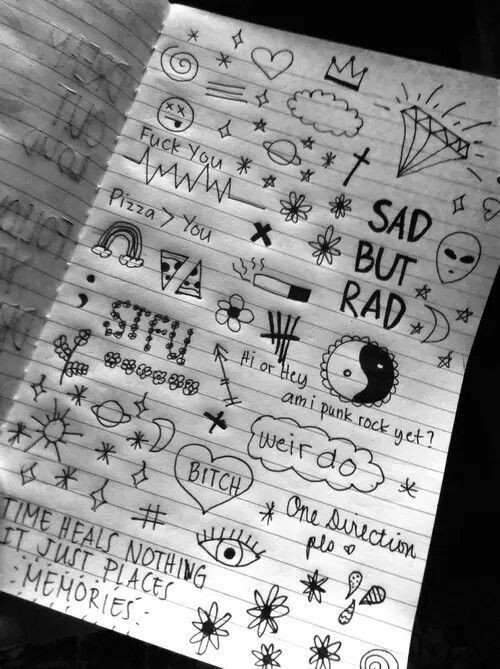 Fuck You
Pizza > You
SAD
BUT
RAD
STFU
Hi or Hey
am i punk rock yet?
weirdo
BITCH
One Direction
plo
#
TIME HEALS NOTHING
IT JUST PLACES
MEMORIES